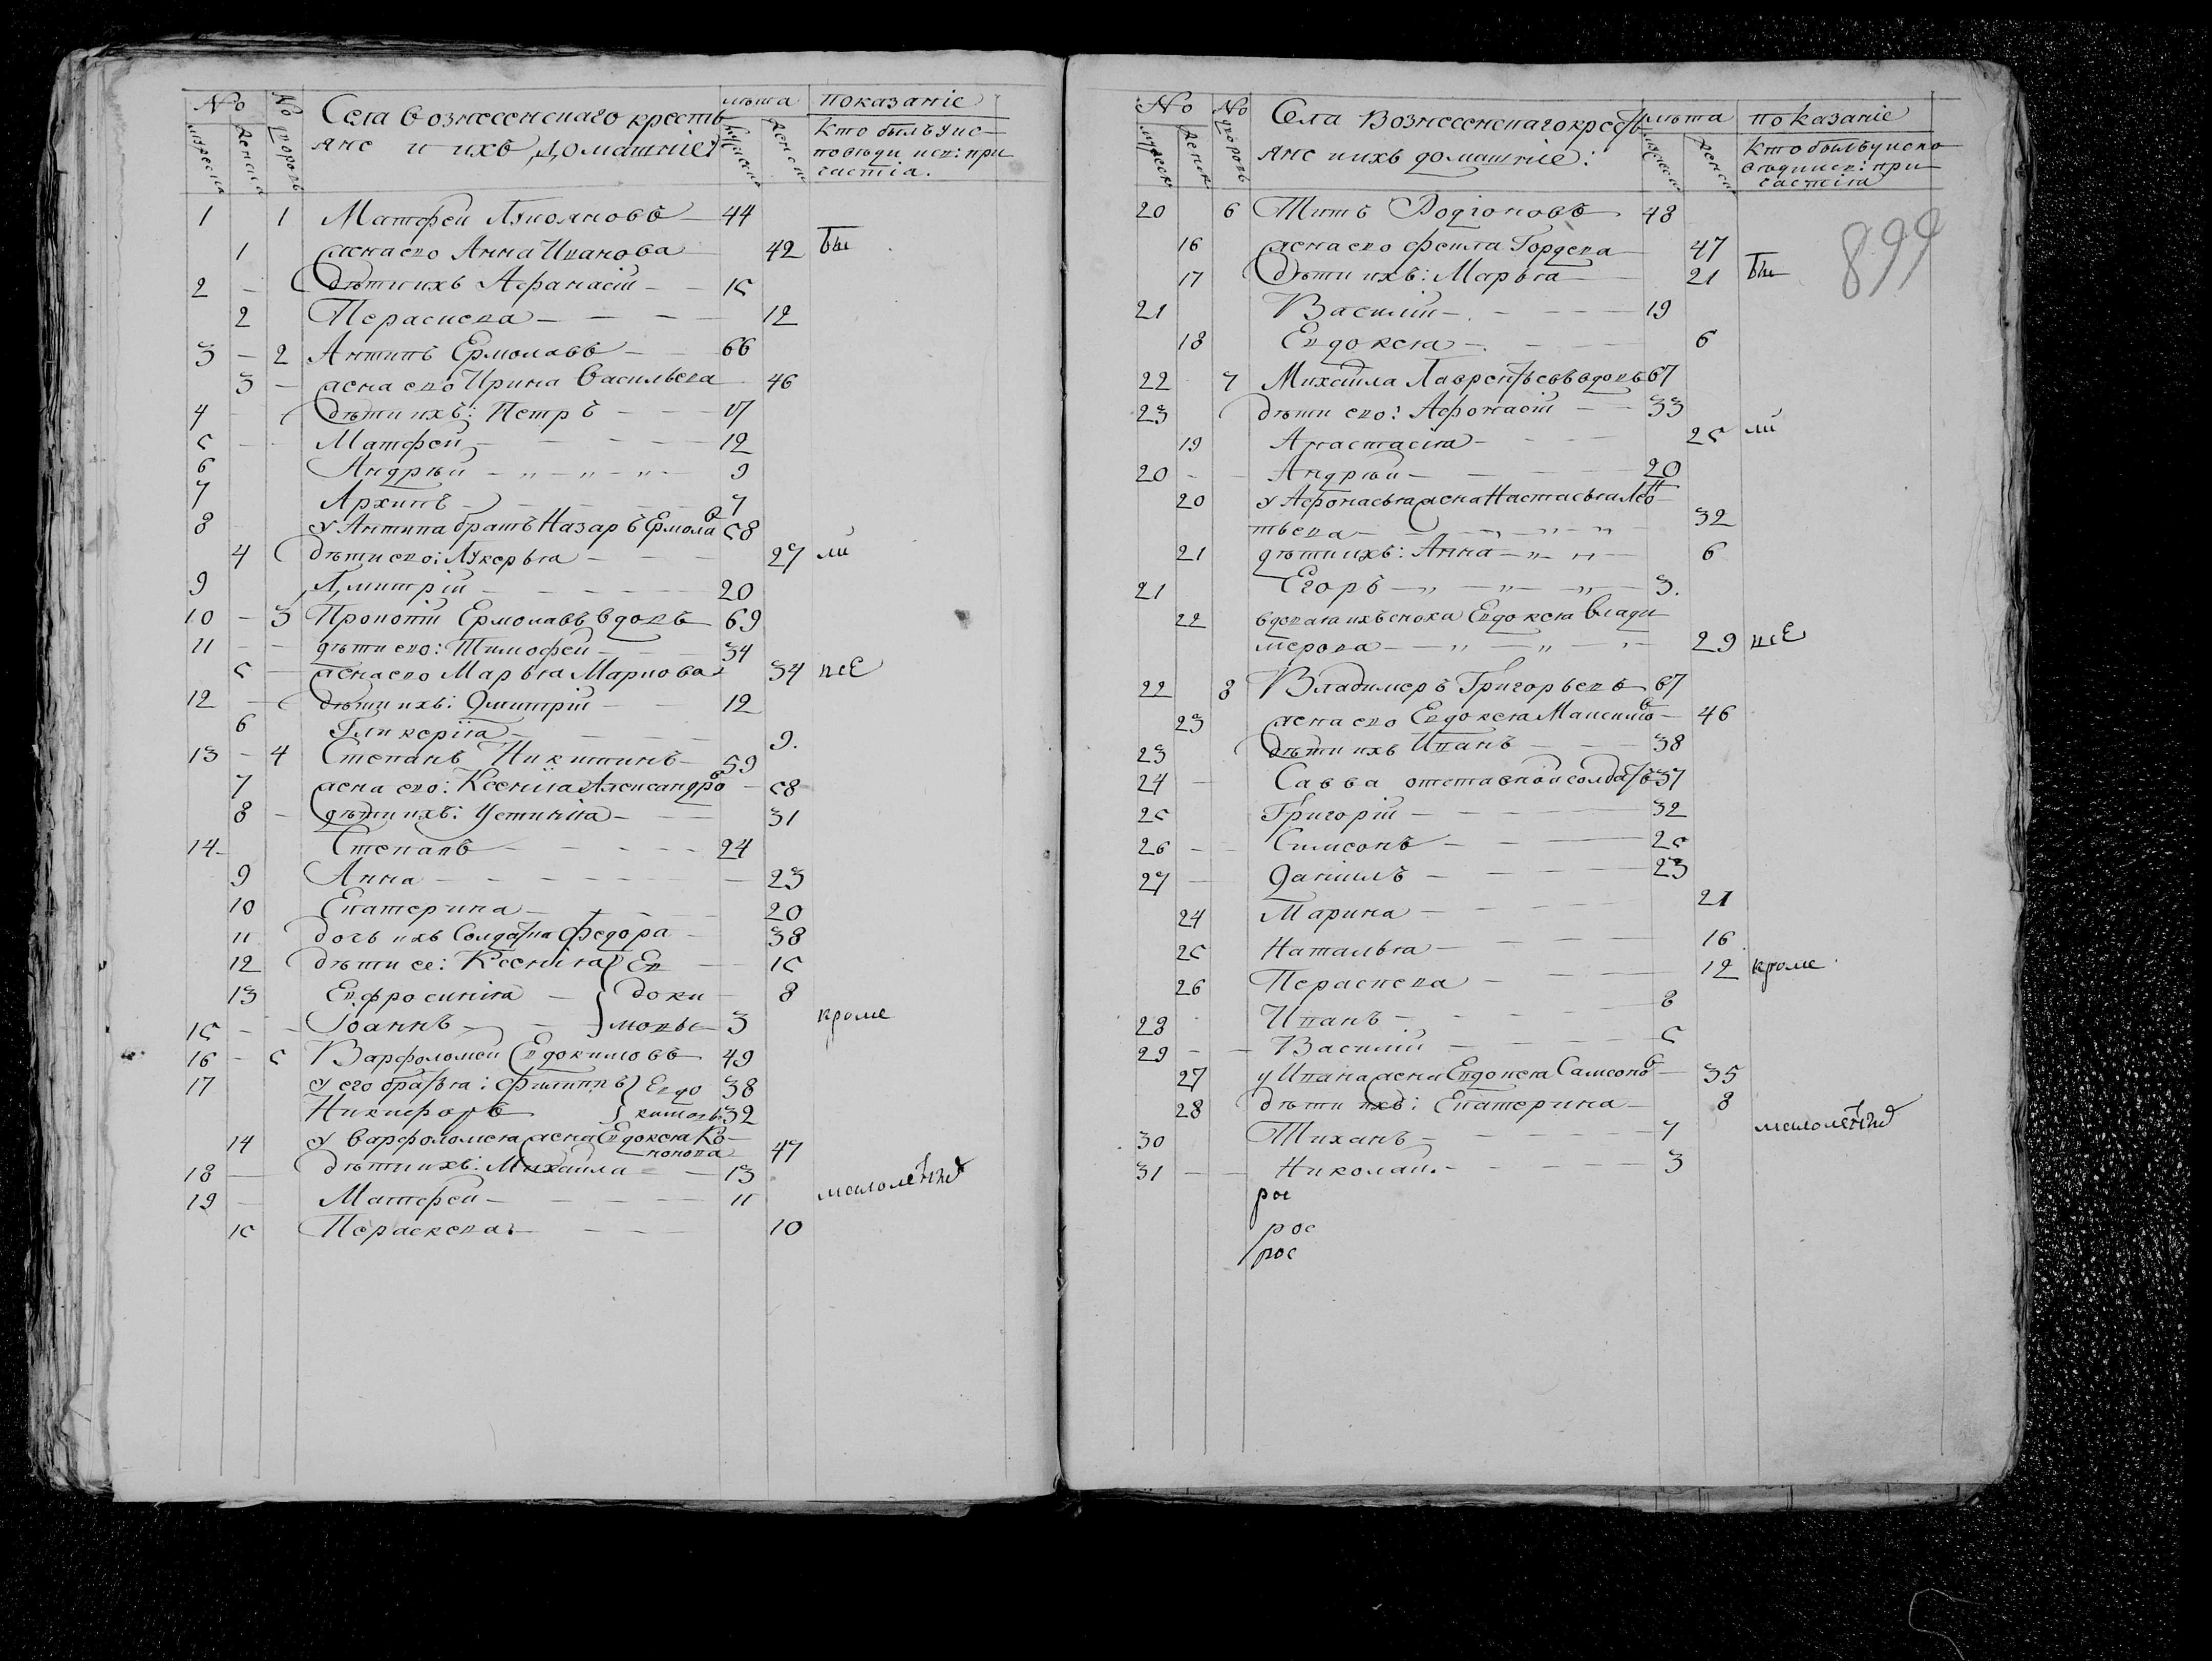 № № Села вознесенскаго кресть лѣта показаніе
мужеска женска дворовъ яне и ихъ домашніе: мужеска женска Кто былъ у ис-
повѣди и св: при
частіа.
1 1 Матфей Лукояновъ 44
1 жена ево Анна Иванова 42 бы
2 дѣти ихъ Афанасій 15
2 Параскева 12
3 2 Антипъ Ермолавъ 66
3 жена ево Ирина Васильева 46
4 дѣти ихъ: Петръ 17
5 Матфей 12
6 Андрѣй 9
7 Архипъ 7
8 у Антипа братъ Назаръ Ермолав 58
4 дѣти ево: Лукерья 27 ли
9 Дмитрій 20
10 3 Прокопій Ермолавъ вдовъ 69
11 дѣти ево: Тимофей 34
5 жена ево Марья Маркова 34 всѣ
12 дѣти ихъ: Дмитрій 12
6 Гликерія 9.
13 4 Степанъ Никитинъ 59
7 жена ево: Ксенія Александров 58
8 дѣти ихъ: Устинія 31
14 Степанъ 24
9 Анна 23
10 Екатерина 20
11 дочь ихъ Солдатка Федора 38
12 дѣти ее: Ксенія } Ев 15
13 Евфросинія } доки 8
15 Іоаннъ } мовы 3 кроме
16 5 Варфоломей Евдокимовъ 49
17 у его братья: Филиппъ } Евдо 38
Никифоръ } кимовъ 32
14 у Варфоломея жена Евдокея Ко-
нонова 47
18 дѣти ихъ: Михайла 13
19 Матфей 11 малолетныѣ
15 Параскева. 10
№ № Села Вознесенскаго кресть лѣта показаніе
мужеск женск дворовъ яне и ихъ домашніе: мужеска женска Кто былъ у испо
вѣди и св: при
частія
899
20 6 Титъ Родіоновъ 48
16 жена ево Фекла Гордева 47
17 дѣти ихъ: Марья 21 бы
21 Василій 19
18 Евдокея 6
22 7 Михайла Лаврентьевъ вдовъ 67
23 дѣти ево: Афонасій 33
19 Анастасія 25 ли
20 Андрѣй 20
20 у Афонасья жена Настасья Ле
тьева 32
21 дѣти ихъ: Анна 6
21 Егоръ 3.
22 вдовая ихъ сноха Евдокея Влади
мерова 29 всѣ
22 8 Владимеръ Григорьевъ 67
23 жена ево Евдокея Максимов 46
23 дѣти ихъ Иванъ 38
24 Савва отставной солдатъ 37
25 Григорій 32
26 Симеонъ 25
27 Данилъ 23
24 Марина 21
25 Наталья 16
26 Параскева 12 кроме
28 Иванъ 8
29 Василий 5
27 у Ивана жена Евдокея Самсонов 35
28 дѣти ихъ: Екатерина 8
30 Тиханъ 7 малолетныѣ
31 Николай. 3
рос
рос
рос